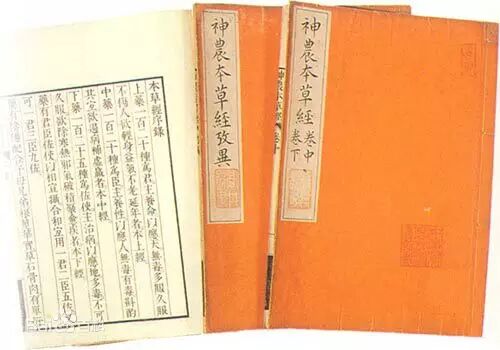 神農本草經 卷中 卷下
神農本草經攷異
本草經序錄
上藥一百二十種爲君主養命以應天無毒多服久服
不傷人欲輕身益氣不老延年者本上經
中藥一百二十種爲臣主養性以應人無毒有毒斟酌
其宜欲遏病補虛羸者本中經
下藥一百二十五種爲佐使主治病以應地多毒不可
久服欲除寒熱邪氣破積聚愈疾者本下經
藥有君臣佐使以相宣攝合和宜用一君二臣五佐
可一君三臣九佐
配合子母兄弟根莖華實草石骨肉有單